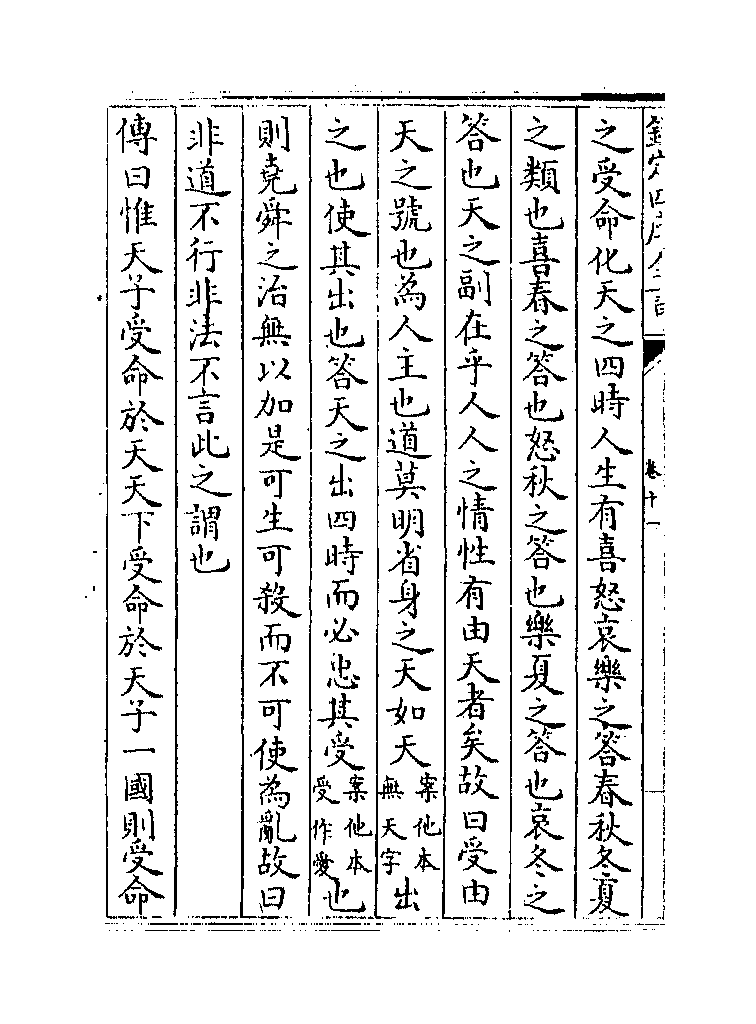 欽定四庫全書
卷十一
之受命化天之四時人生有喜怒哀樂之答春秋冬夏
之類也喜春之答也怒秋之答也樂夏之答也哀冬之
答也天之副在乎人人之情性有由天者矣故曰受由
天之號也為人主也道莫明省身之天如天案他本無天字出
之也使其出也答天之出四時而必忠其受案他本受作愛也
則堯舜之治無以加是可生可殺而不可使為亂故曰
非道不行非法不言此之謂也
傳曰惟天子受命於天天下受命於天子一國則受命